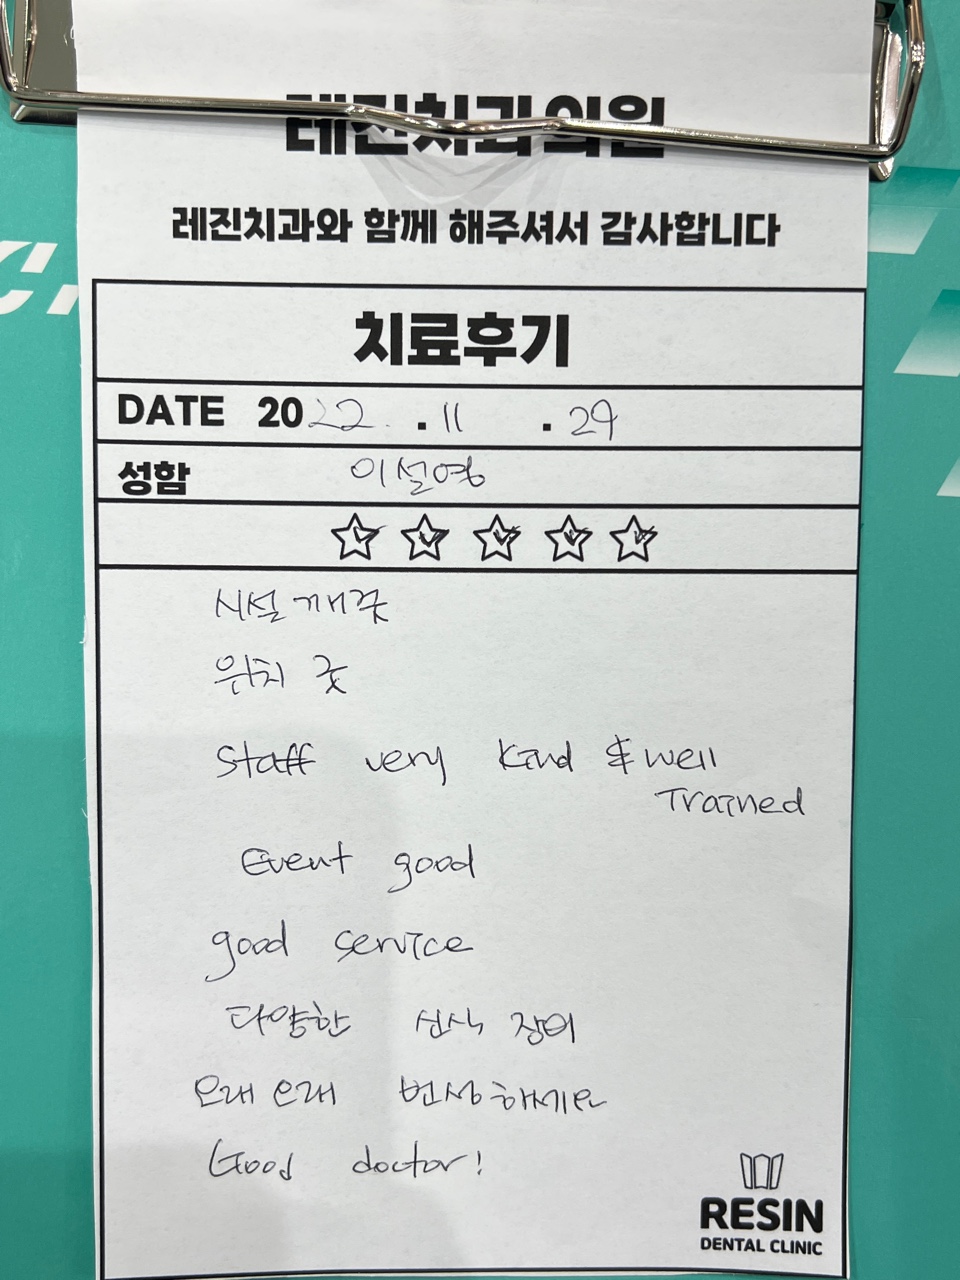 레진치과의원
레진치과와 함께 해주셔서 감사합니다
치료후기
DATE 2022 . 11 . 29
성함 이설영
시설 깨굿
위치 굿
Staff very kind & well
Trained
Event good
good service
다양한 신식 장비
오래오래 번성하세요
Good doctor!
RESIN
DENTAL CLINIC